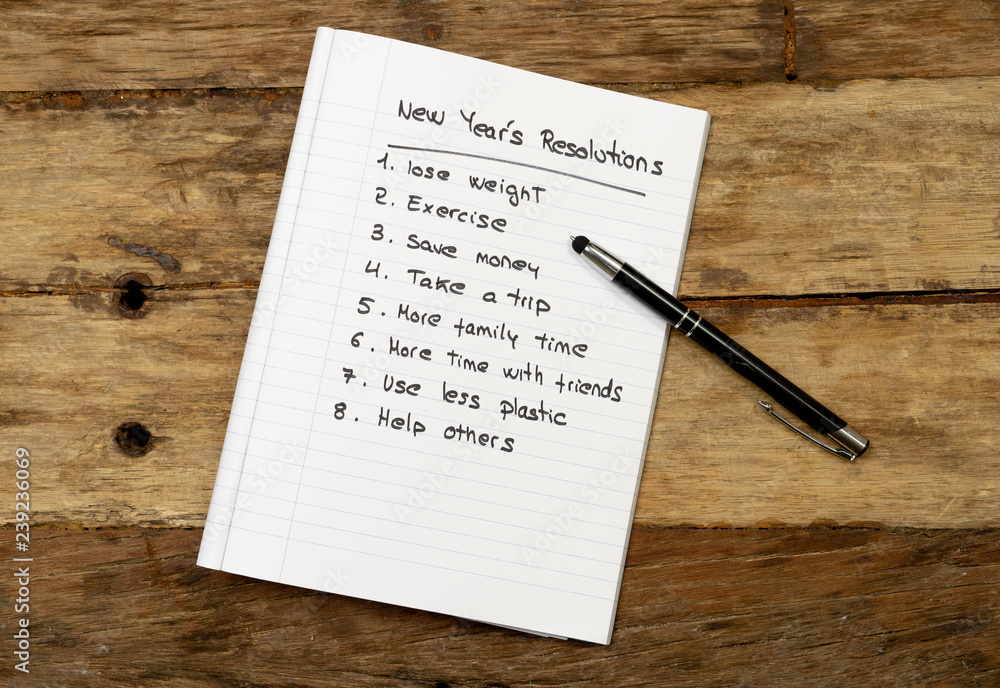 New Year's Resolutions
1. lose weight
2. Exercise
3. Save money
4. Take a trip
5. More family time
6. More time with friends
7. Use less plastic
8. Help others
Adobe Stock | #239236069